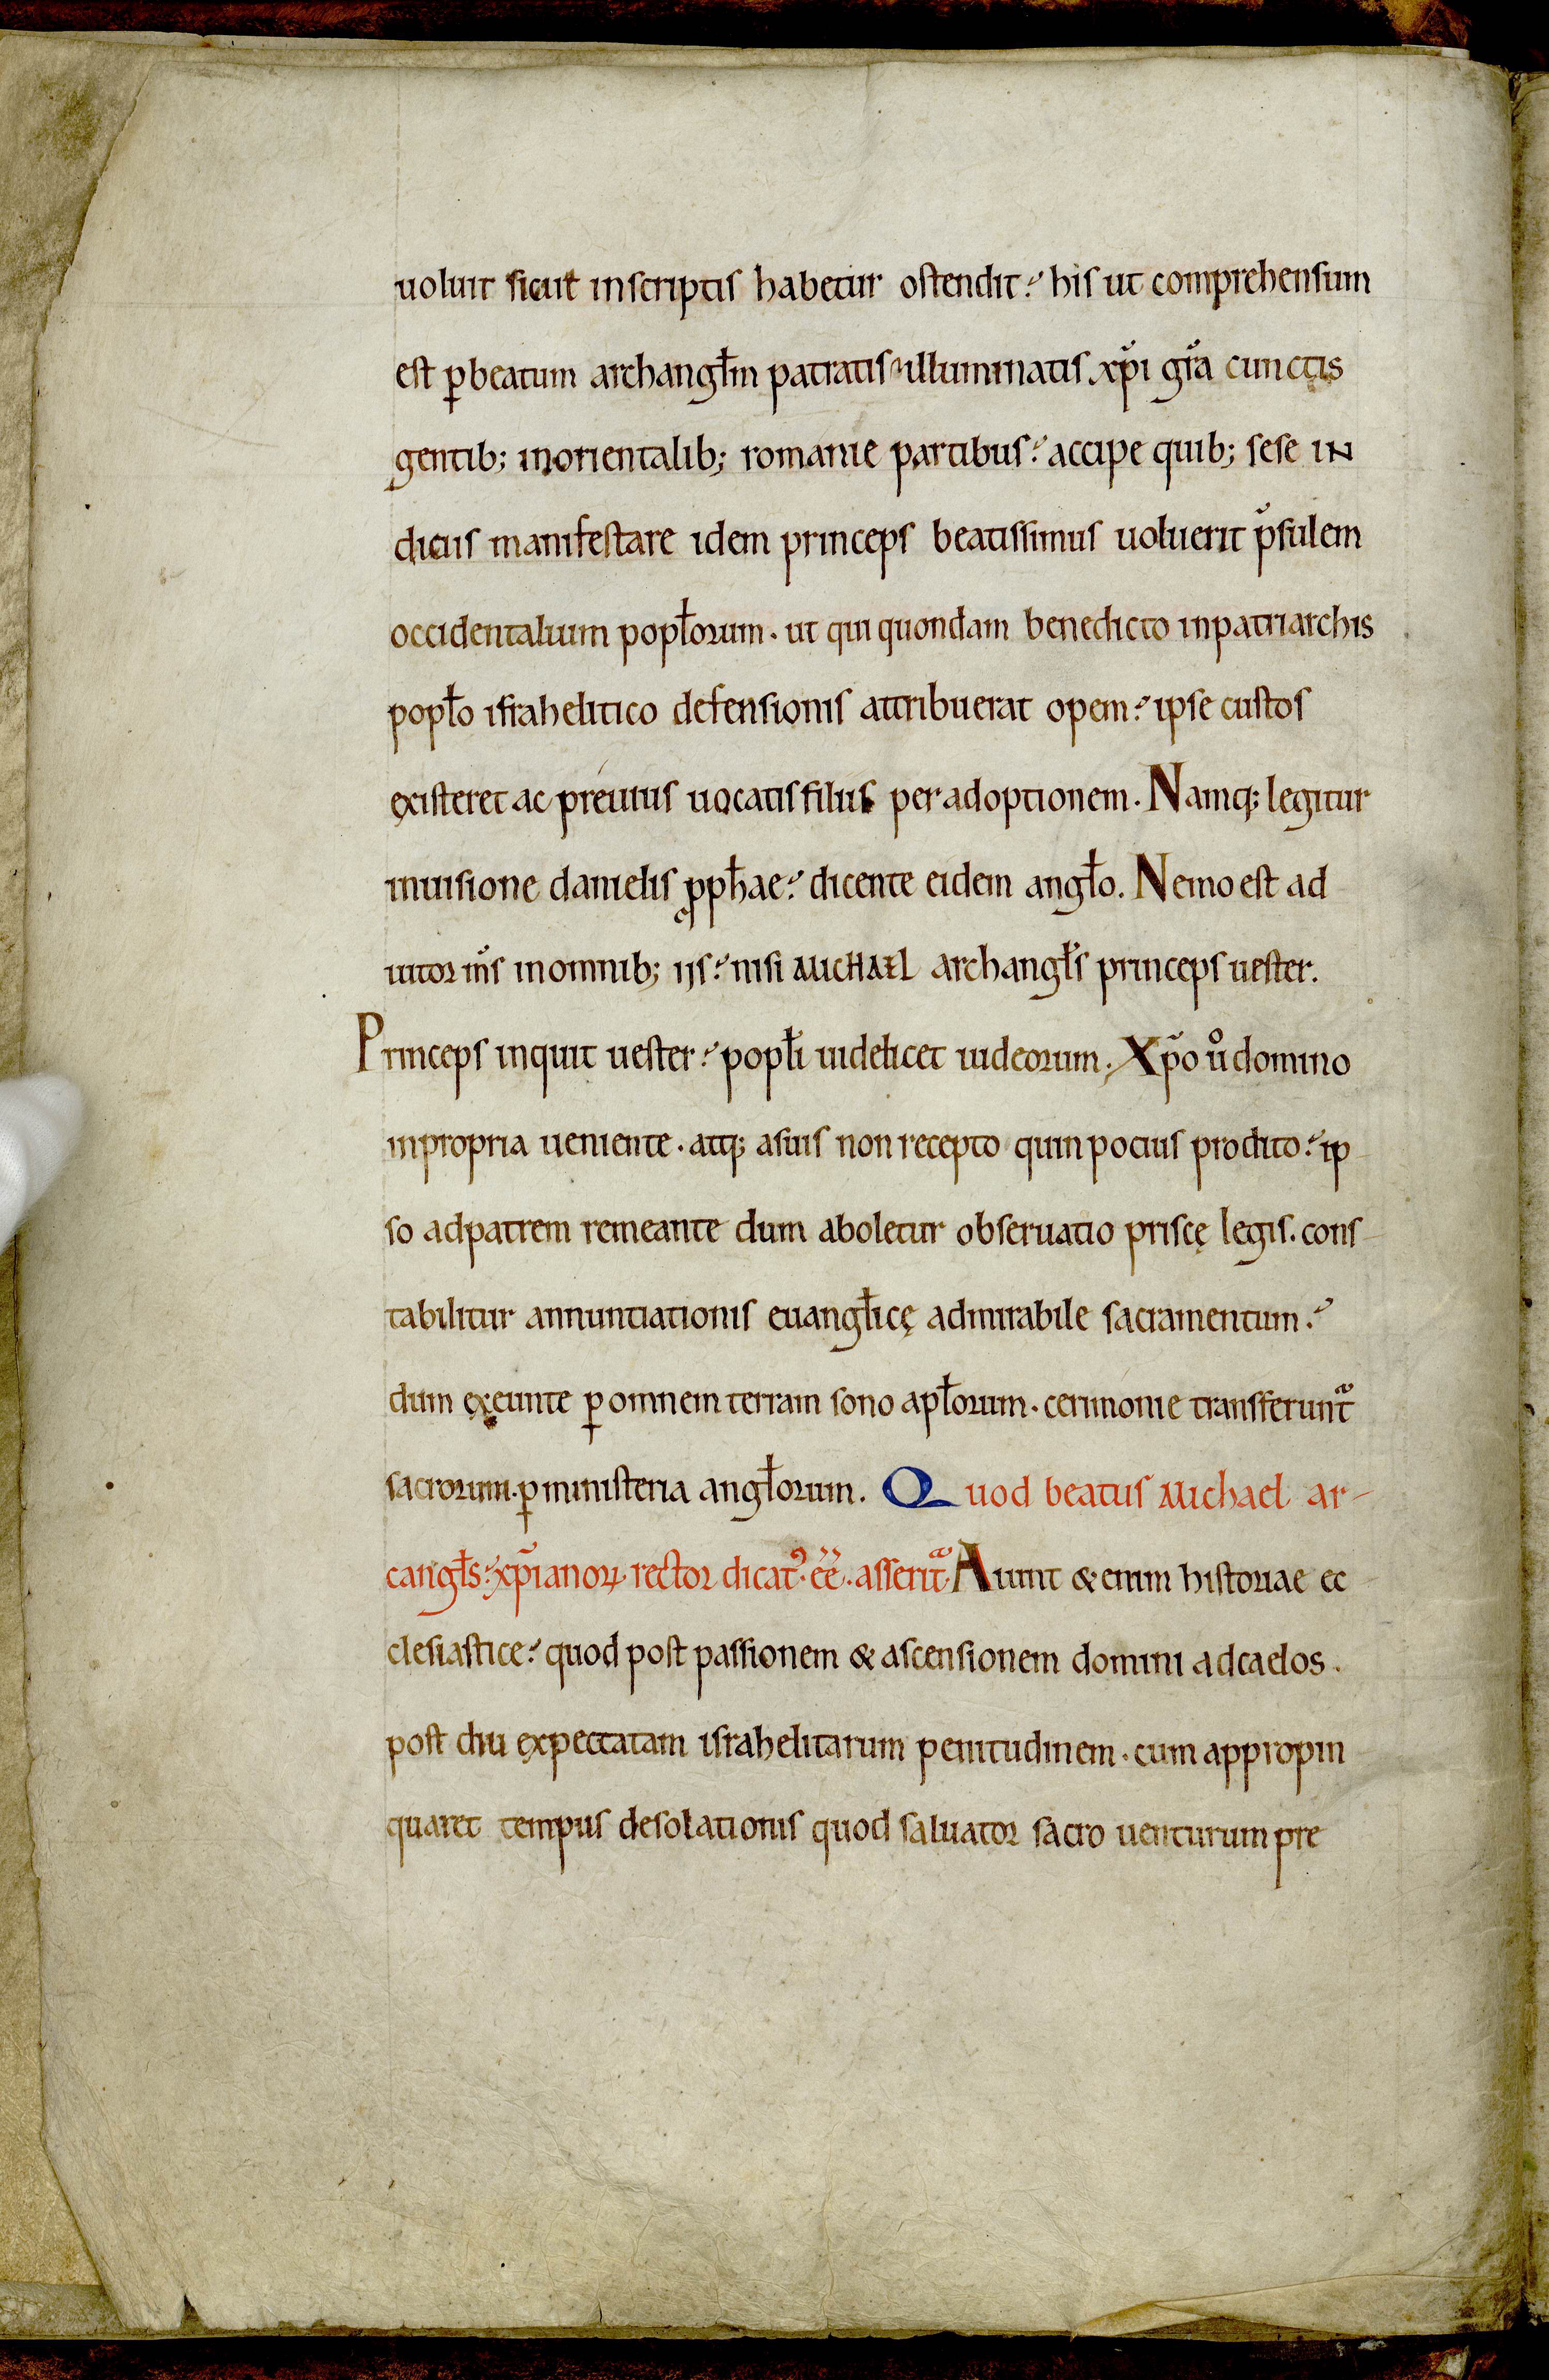 uoluit sicut inscriptis habetur ostendit. his ut comprehensum
est ꝑbeatum archangłm patratis illuminatis xp̃i gr̃a cunctis
gentib; inorientalib; romanie partibus. accipe quib; sese IN
diciis manifestare idem princeps beatissimus uoluerit p̃sulem
occidentalium popłorum. ut qui quondam benedicto inpatriarchis
popło israhelitico defensionis attribuerat opem. ipse custos
existeret ac preuius uocatis filiis per adoptionem. Namq; legitur
inuisione danielis ꝓpħae. dicente eidem angło. Nemo est ad
iutor m̃s inomnib; iis. nisi MICHAEL archangłs princeps uester.
Princeps inquit uester. popłi uidelicet iudeorum. Xp̃o uͦ domino
inpropria ueniente. atq; asuis non recepto quin pocius prodito. ip
so adpatrem remeante dum aboletur obseruatio priscę legis. cons
tabilitur annuntiationis euangłicę admirabile sacramentum.
dum exeunte ꝑ omnem terram sono apłorum. cerimonie transferuntᷓ
sacrorum. ꝑ ministeria angłorum. Quod beatus Michael ar-
cangłs. xp̃ianoꝝ. rector dicat᷒. ee᷉. asseritᷓ Aiunt & enim historiae ec
clesiastice. quod post passionem & ascensionem domini adcaelos.
post diu expectatam israhelitarum penitudinem. cum appropin
quaret tempus desolationis quod saluator sacro uenturum pre